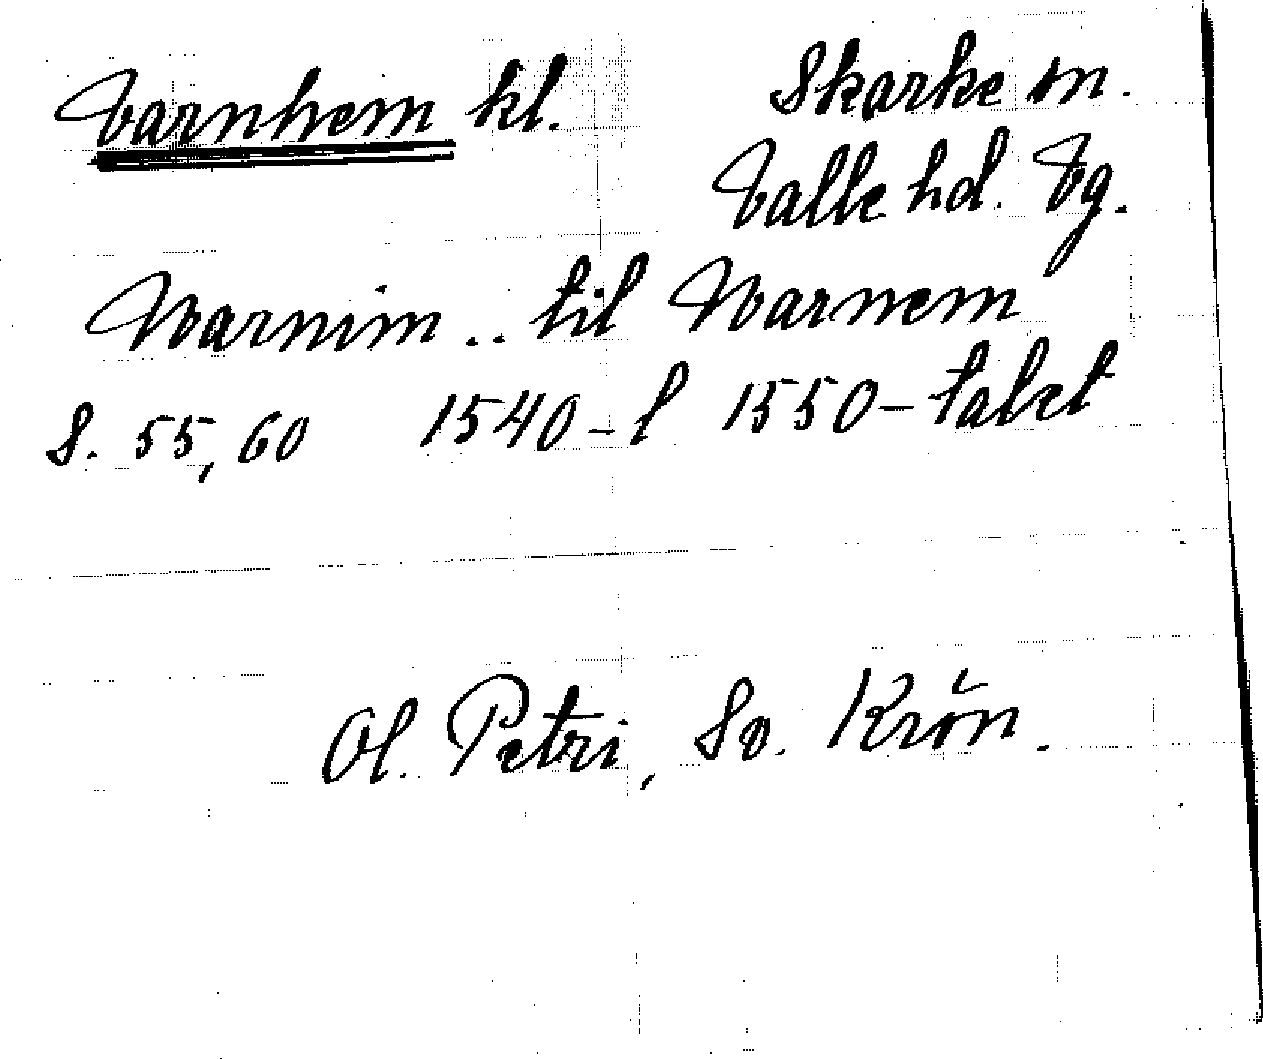 Varnhem kl. Skarke sn.
Valle hd. Vg.
Warnim .. til Warnem
S. 55, 60 1540 - l 1550-talet
Ol. Petri, Sv. Krön.